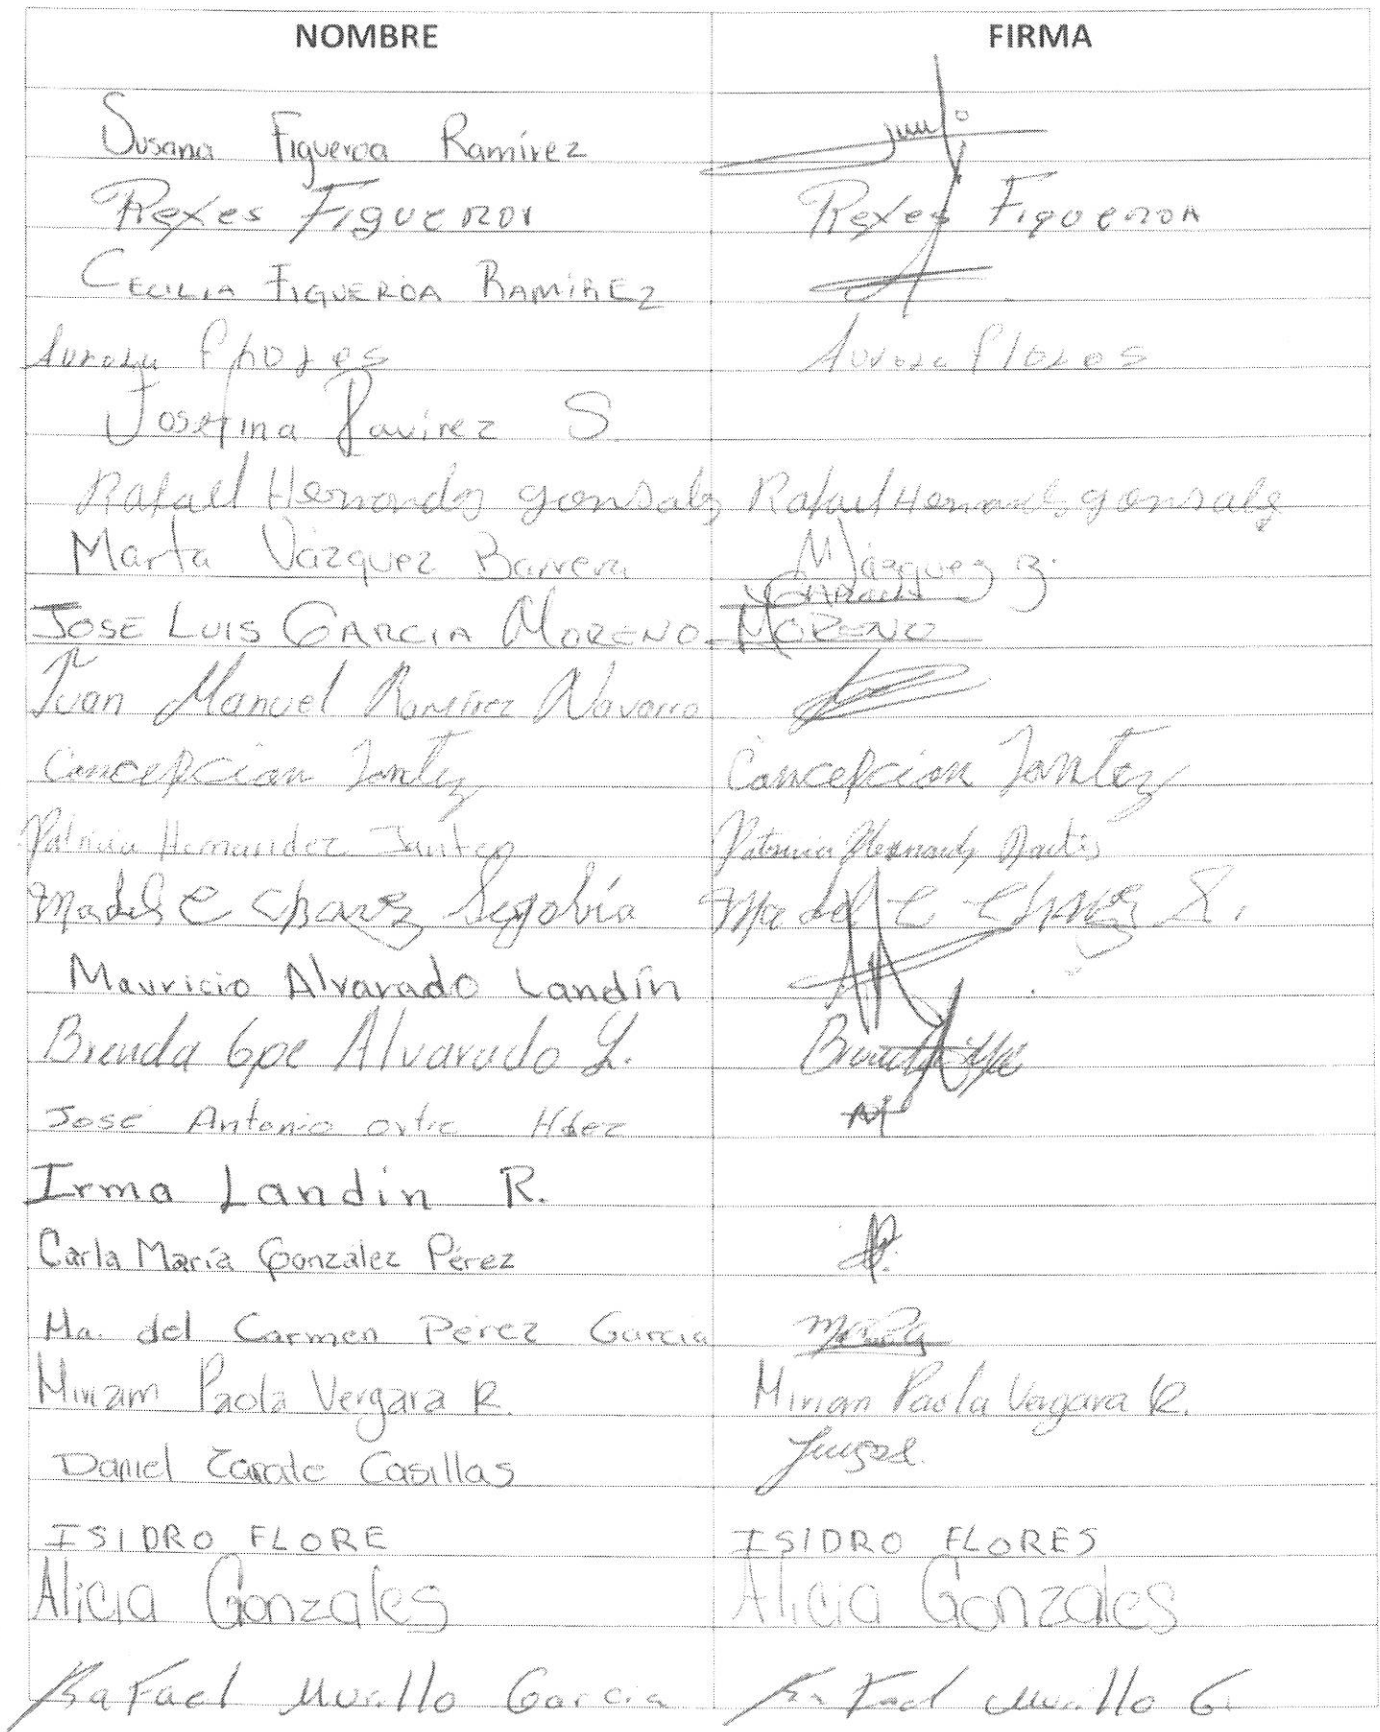 NOMBRE FIRMA
Susana Figueroa Ramírez
Reyes Figueroa Reyes Figueroa
CECILIA FIGUEROA RAMIREZ
Aurora Flores Aurora Flores
Josefina Ramirez S.
Rafael Hernandez gonsalez Rafael Hernandez gonsalez
Marta Vázquez Barrera M Vázquez B.
JOSE LUIS GARCIA MORENO GARCIA MORENO
Juan Manuel Ramírez Navarro
Concepcion Concepcion
Patricia Hernandez Patricia Hernandez
Ma del C Chavez Segovia Ma del C Chavez S.
Mauricio Alvarado Landín
Brenda Gpe Alvarado L.
José Antonio Hdez
Irma Landin R.
Carla María González Pérez
Ma. del Carmen Perez Garcia
Miriam Paola Vergara R. Miriam Paola Vergara R.
Daniel Zarate Casillas
ISIDRO FLORE ISIDRO FLORES
Alicia Gonzales Alicia Gonzales
Rafael Murillo Garcia Rafael Murillo G.